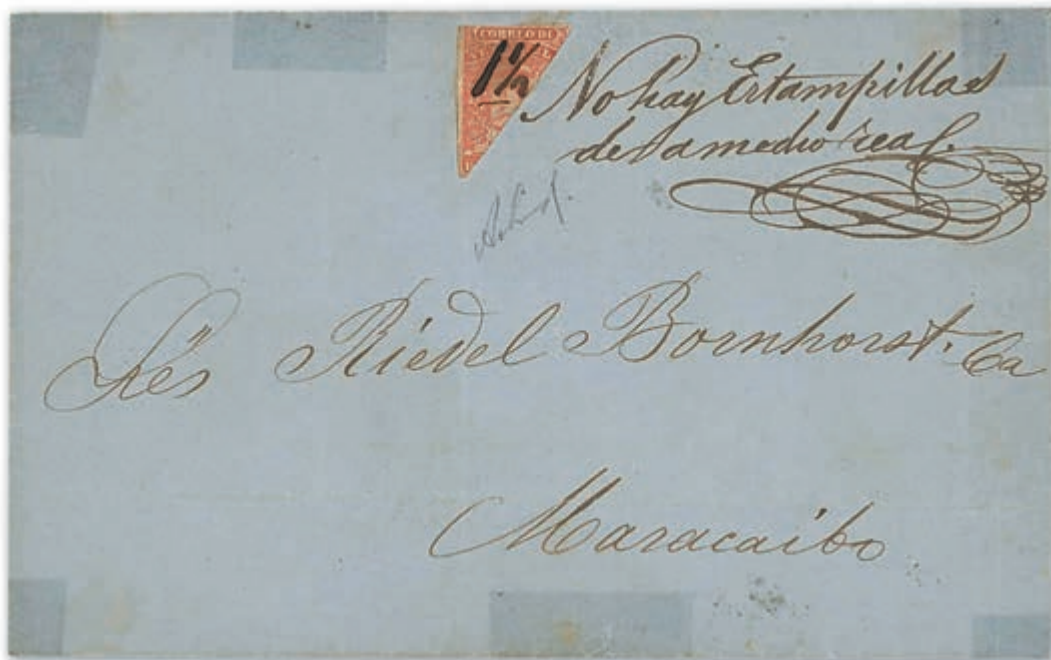 CORREO DE
1 1/2
No hay Estampillas
de a medio real.
Res Riedel Bornhorst. Ca
Maracaibo